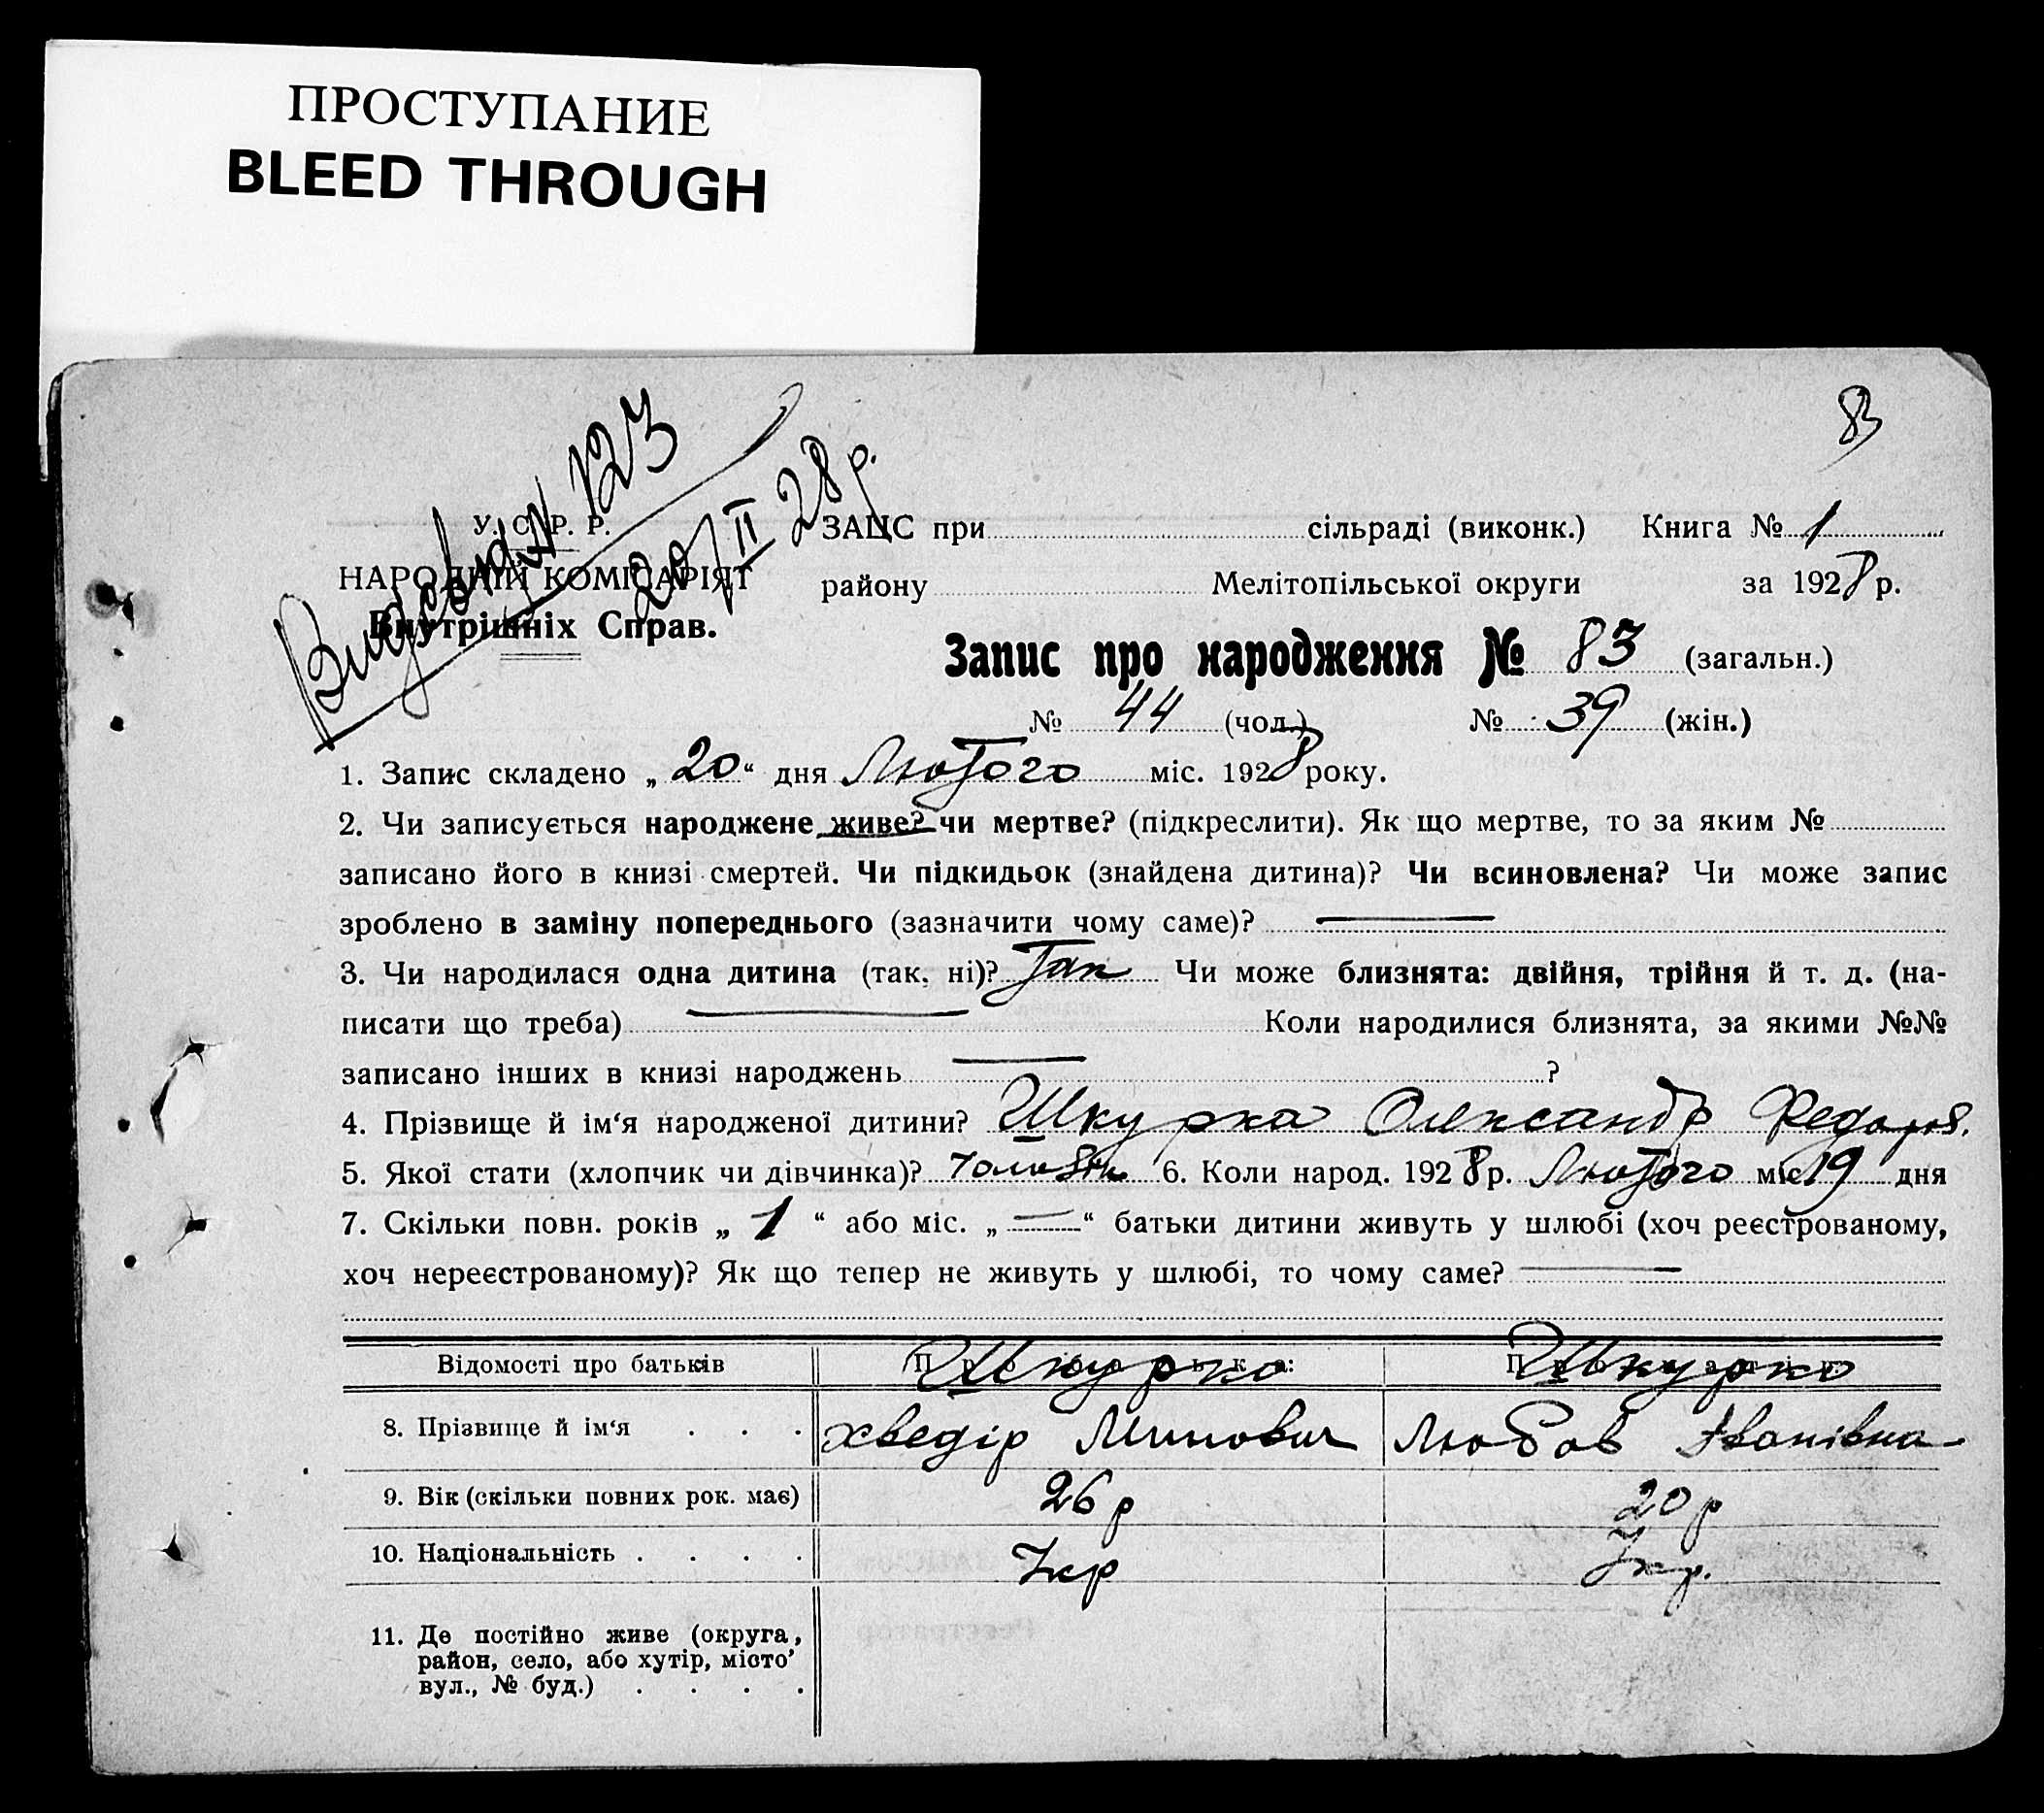 ПРОСТУПАНИЕ
BLEED THROUGH
83
№ 123
20/II 28 р.
У. С. Р. Р.
НАРОДНІЙ КОМІСАРІЯТ
Внутрішніх Справ.
ЗАЦС при сільраді (виконк.) Книга № 1
району Мелітопільської округи за 1928 р.
Запис про народження № 83 (загальн.)
№ 44 (чол.) № 39 (жін.)
1. Запис складено „ 20 “ дня Лютого міс. 1928 року.
2. Чи записується народжене живе? чи мертве? (підкреслити). Як що мертве, то за яким №
записано його в книзі смертей. Чи підкидьок (знайдена дитина)? Чи всиновлена? Чи може запис
зроблено в заміну попереднього (зазначити чому саме)? —
3. Чи народилася одна дитина (так, ні)? Так Чи може близнята: двійня, трійня й т. д. (на-
писати що треба) — Коли народилися близнята, за якими №№
записано інших в книзі народжень — ?
4. Прізвище й ім‘я народженої дитини? Шкурка Олександр Федоров.
5. Якої стати (хлопчик чи дівчинка)? чоловік 6. Коли народ. 1928 р. Лютого міс. 19 дня
7. Скільки повн. років „ 1 “ або міс. „ — “ батьки дитини живуть у шлюбі (хоч реєстрованому,
хоч нереєстрованому)? Як що тепер не живуть у шлюбі, то чому саме? —
Відомості про батьків Про батька: Шкурко Про матір: Шкурко
8. Прізвище й ім‘я . . . Хведір Минович Любов Іванівна
9. Вік (скільки повних рок. має) 26 р 20 р
10. Національність . . . . Укр Укр.
11. Де постійно живе (округа,
район, село, або хутір, місто,
вул., № буд.) . . . .